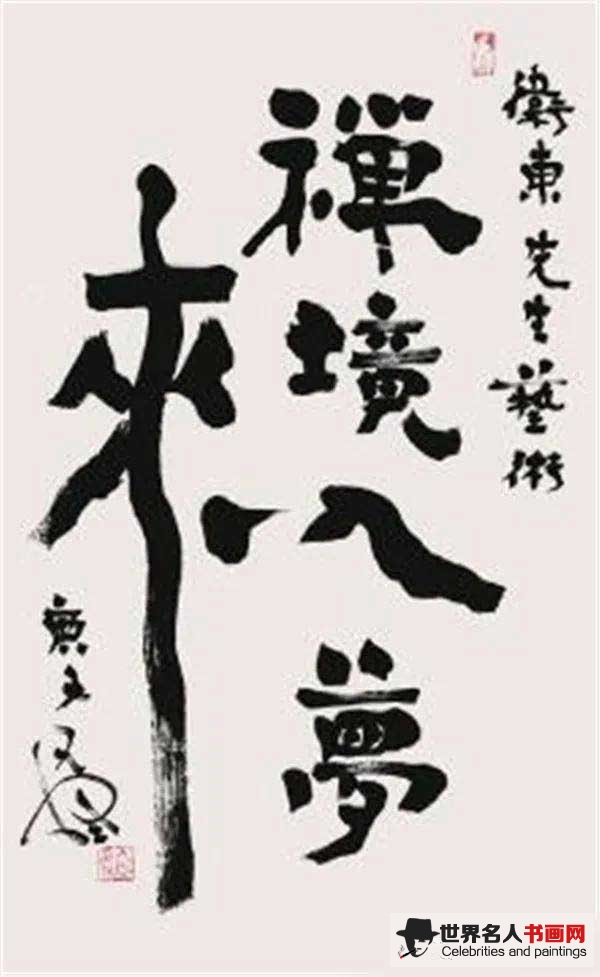 衛東先生藝術
禪境入夢
來
世界名人书画网
Celebrities and paintings